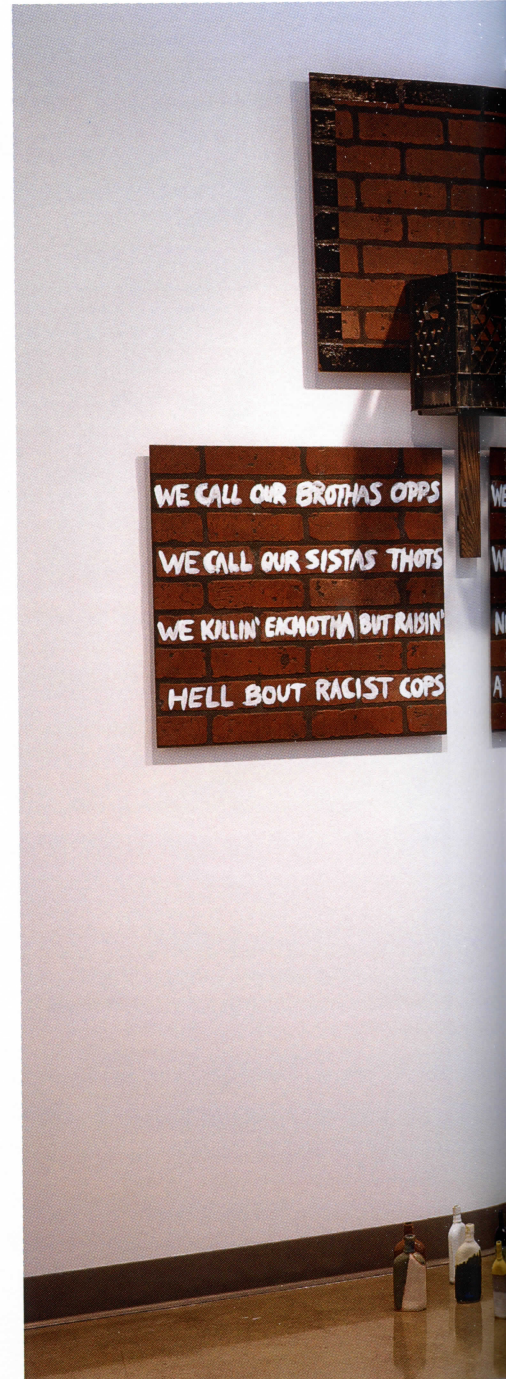 WE CALL OUR BROTHAS OPPS
WE CALL OUR SISTAS THOTS
WE KILLIN' EACHOTHA BUT RAISIN'
HELL BOUT RACIST COPS
WE
A